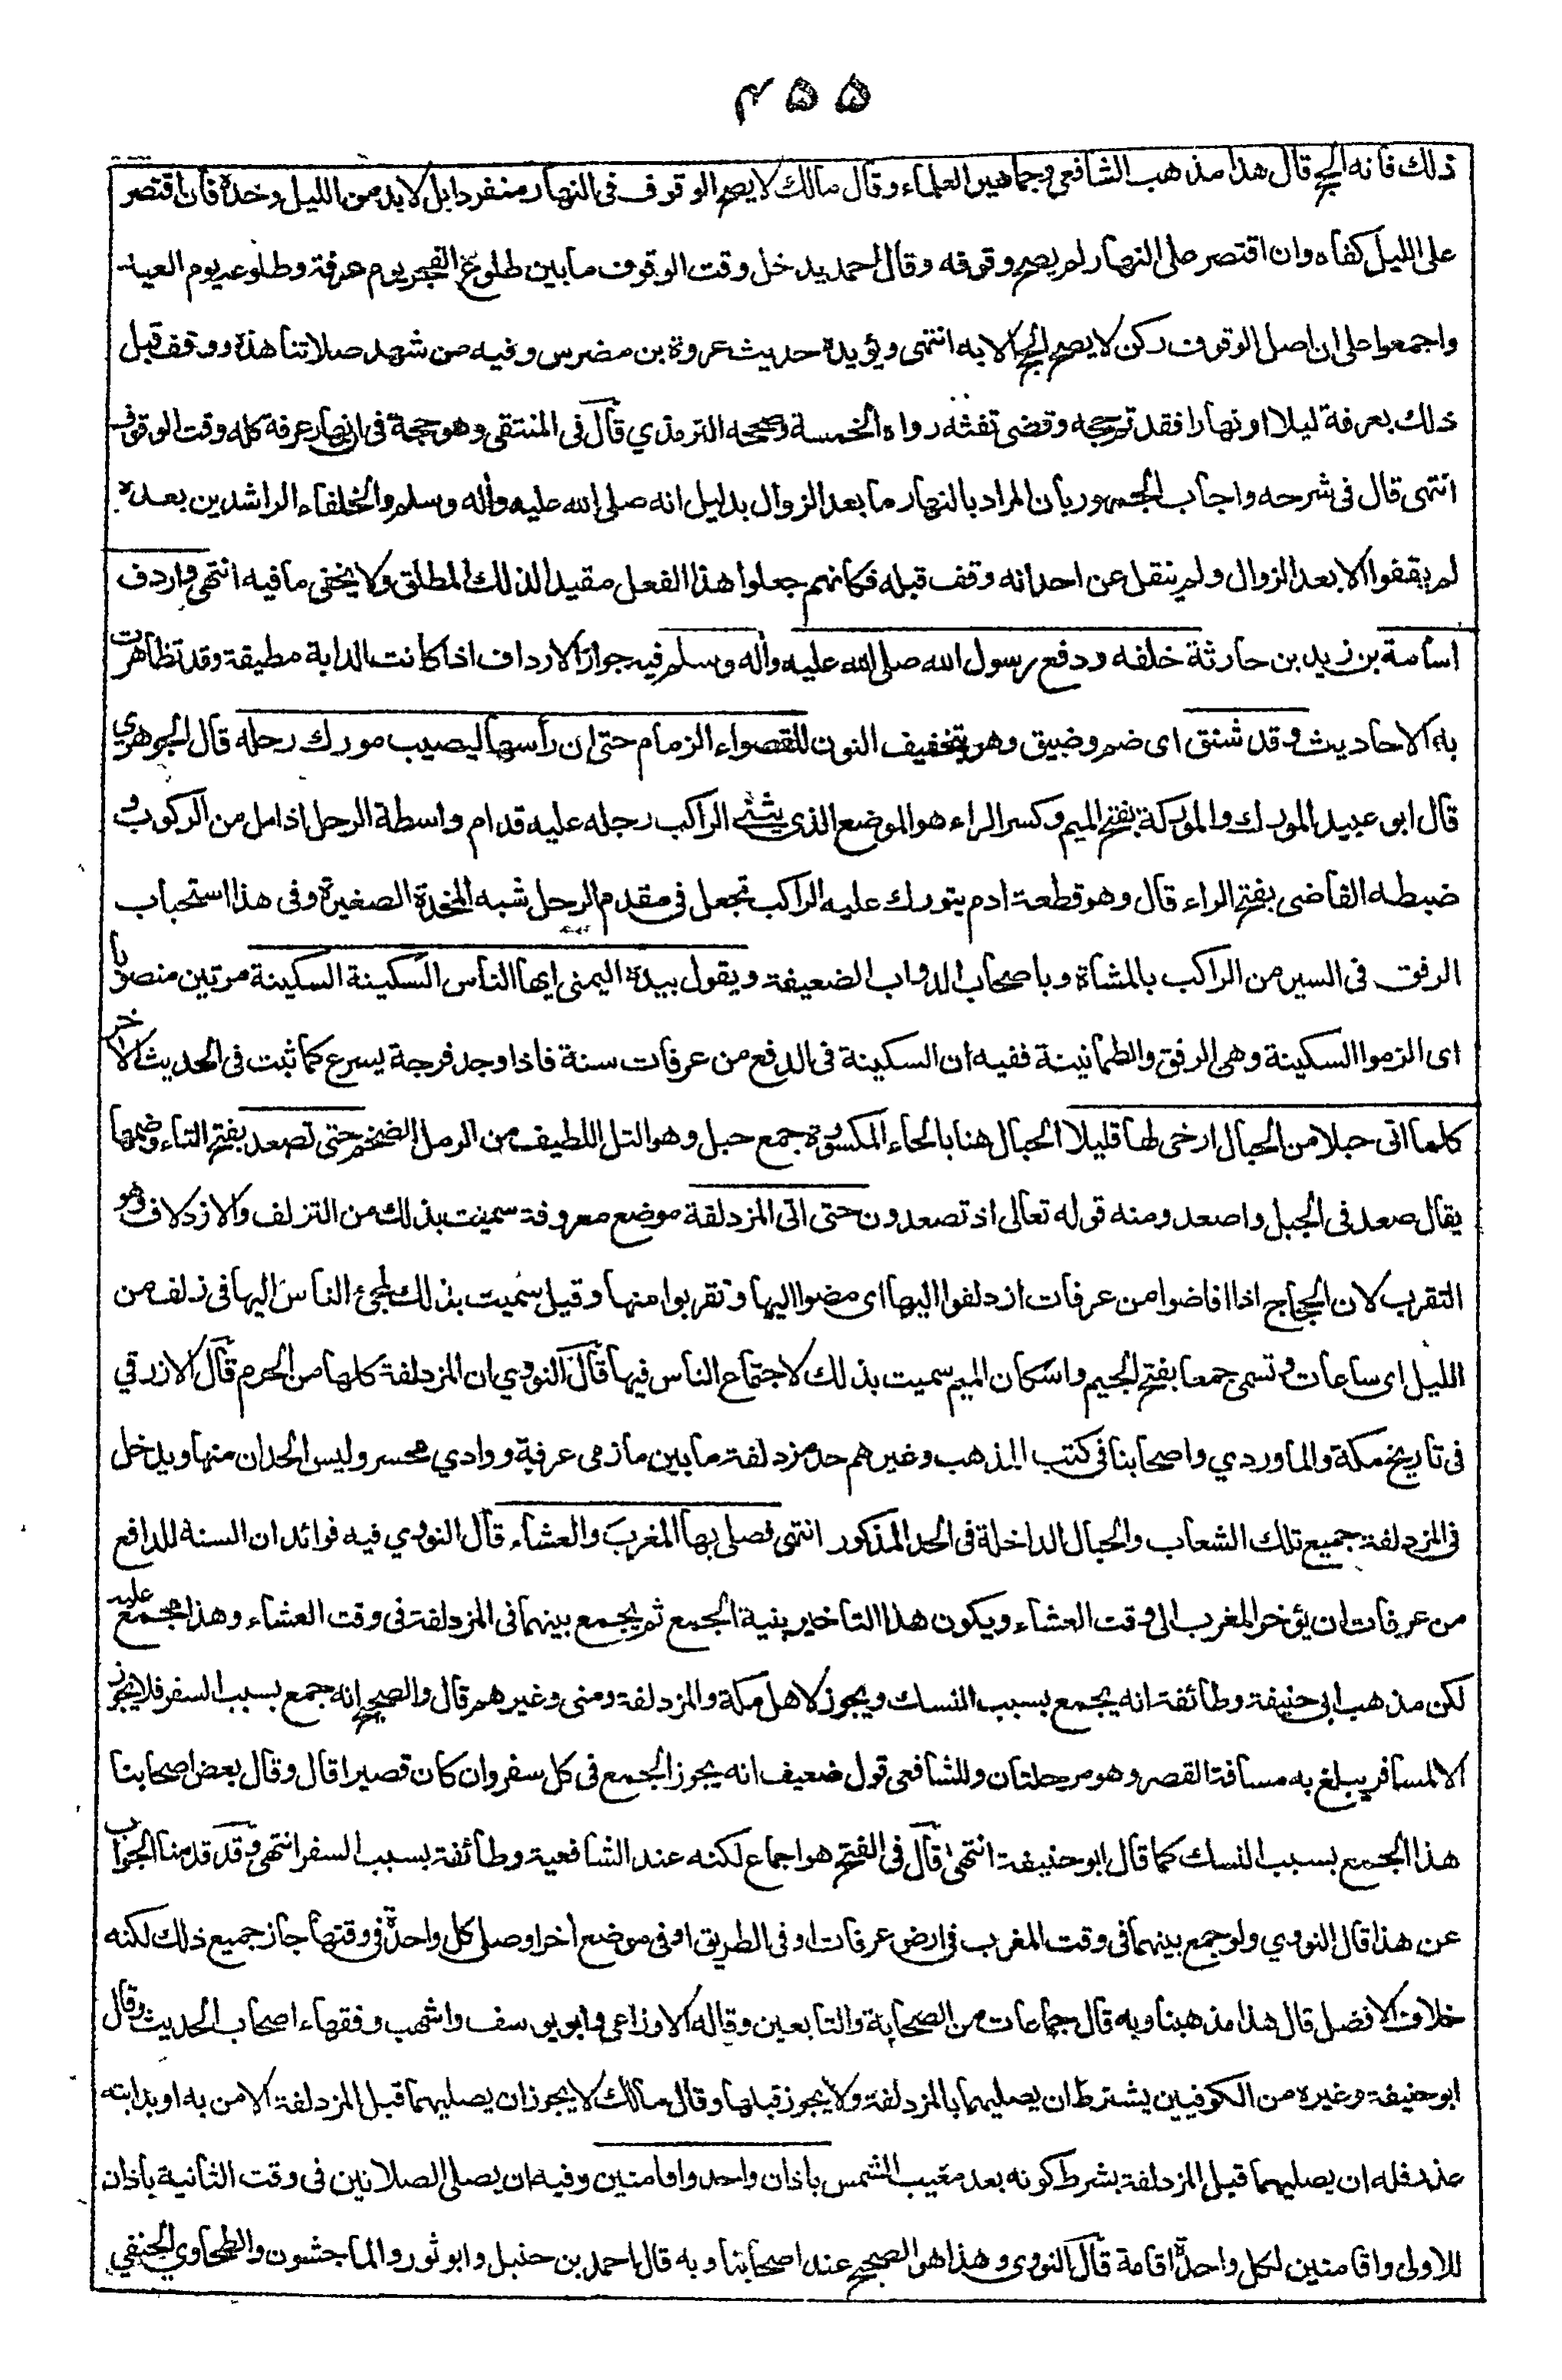 ۴۵۵
ذلك فاته الحج قال هذا مذهب الشافعي وجماهير العلماء وقال مالك لا يصح الوقوف فى النهار منفردا بل لا بد من الليل وحده فان اقتصر
على الليل كفاه وان اقتصر على النهار لم يصح وقوفه وقال احمد يدخل وقت الوقوف ما بين طلوع الفجر يوم عرفة وطلوعه يوم العيد
واجمعوا على ان اصل الوقوف ركن لا يصح الحج الا به انتهى ويؤيده حديث عروة بن مضرس وفيه من شهد صلاتنا هذه ووقف قبل
ذلك بعرفة ليلا او نهارا فقد تم حجه وقضى تفثه رواه الخمسة وصححه الترمذي قال فى المنتقى وهو حجة فى ان نهار عرفة كله وقت الوقوف
انتهى قال فى شرحه واجاب الجمهور بان المراد بالنهار ما بعد الزوال بدليل انه صلى الله عليه وأله وسلم والخلفاء الراشدين بعده
لم يقفوا الا بعد الزوال ولم ينقل عن احد انه وقف قبله فكانهم جعلوا هذا الفعل مقيدا لذلك المطلق ولا يخفى ما فيه انتهى واردف
اسامة بن زيد بن حارثة خلفه ودفع رسول الله صلى الله عليه وأله وسلم فيه جواز الارداف اذا كانت الدابة مطيقة وقد تظاهرت
به الاحاديث وقد شنق اى ضم وضيق وهو بتخفيف النون للقصواء الزمام حتى ان رأسها ليصيب مورك رحله قال الجوهري
قال ابو عبيد المورك والموركة بفتح الميم وكسر الراء هو الموضع الذى يثنى الراكب رجله عليه قدام واسطة الرحل اذا مل من الركوب و
ضبطه القاضى بفتح الراء قال وهو قطعة ادم يتورك عليه الراكب تجعل فى مقدم الرحل شبه المخدة الصغيرة وفى هذا استحباب
الرفق فى السير من الراكب بالمشاة وباصحاب الدواب الضعيفة ويقول بيده اليمنى ايها الناس السكينة السكينة مرتين منصوبا
اى الزموا السكينة وهى الرفق والطمانينة ففيه ان السكينة فى الدفع من عرفات سنة فاذا وجد فرجة يسرع كما ثبت فى الحديث الاخر
كلما اتى حبلا من الحبال ارخى لها قليلا الحبال هنا بالحاء المكسورة جمع حبل وهو التل اللطيف من الرمل الضخم حتى تصعد بفتح التاء وضمها
يقال صعد فى الجبل واصعد ومنه قوله تعالى اذ تصعدون حتى اتى المزدلفة موضع معروفة سميت بذلك من التزلف والازدلاف وهو
التقرب لان الحجاج اذا افاضوا من عرفات ازدلفوا اليها اى مضوا اليها وتقربوا منها وقيل سميت بذلك لمجئ الناس اليها فى زلف من
الليل اى ساعات وتسمى جمعا بفتح الجيم واسكان الميم سميت بذلك لاجتماع الناس فيها قال النووي ان المزدلفة كلها من الحرم قال الازرقي
فى تاريخ مكة والماوردي واصحابنا فى كتب المذهب وغيرهم حد مزدلفة ما بين مازمى عرفة ووادي محسر وليس الحدان منها ويدخل
فى المزدلفة جميع تلك الشعاب والحبال الداخلة فى الحد المذكور انتهى فصلى بها المغرب والعشاء قال النووي فيه فوائد ان السنة للدافع
من عرفات ان يؤخر المغرب الى وقت العشاء ويكون هذا التاخير بنية الجمع ثم يجمع بينهما فى المزدلفة فى وقت العشاء وهذا مجمع عليه
لكن مذهب ابى حنيفة وطائفة انه يجمع بسبب النسك ويجوز لاهل مكة والمزدلفة ومنى وغيرهم قال والصحيح انه جمع بسبب السفر فلا يجوز
الا لمسافر يبلغ به مسافة القصر وهو مرحلتان وللشافعى قول ضعيف انه يجوز الجمع فى كل سفر وان كان قصيرا قال وقال بعض اصحابنا
هذا الجمع بسبب النسك كما قال ابو حنيفة انتهى قال فى الفتح هو اجماع لكنه عند الشافعية وطائفة بسبب السفر انتهى وقد قدمنا الجواب
عن هذا قال النووي ولو جمع بينهما فى وقت المغرب فى ارض عرفات او فى الطريق او فى موضع أخر او صلى كل واحدة فى وقتها جاز جميع ذلك لكنه
خلاف الافضل قال هذا مذهبنا وبه قال جماعات من الصحابة والتابعين وقاله الاوزاعى وابو يوسف واشهب وفقهاء اصحاب الحديث وقال
ابو حنيفة وغيره من الكوفيين يشترط ان يصليهما بالمزدلفة ولا يجوز قبلها وقال مالك لا يجوز ان يصليهما قبل المزدلفة الا من به او بدابته
عذر فله ان يصليهما قبل المزدلفة بشرط كونه بعد مغيب الشمس باذان واحد واقامتين وفيه ان يصلى الصلاتين فى وقت الثانية باذان
للاولى واقامتين لكل واحدة اقامة قال النووى وهذا هو الصحيح عند اصحابنا وبه قال احمد بن حنبل وابو ثور والماجشون والطحاوي الحنفي